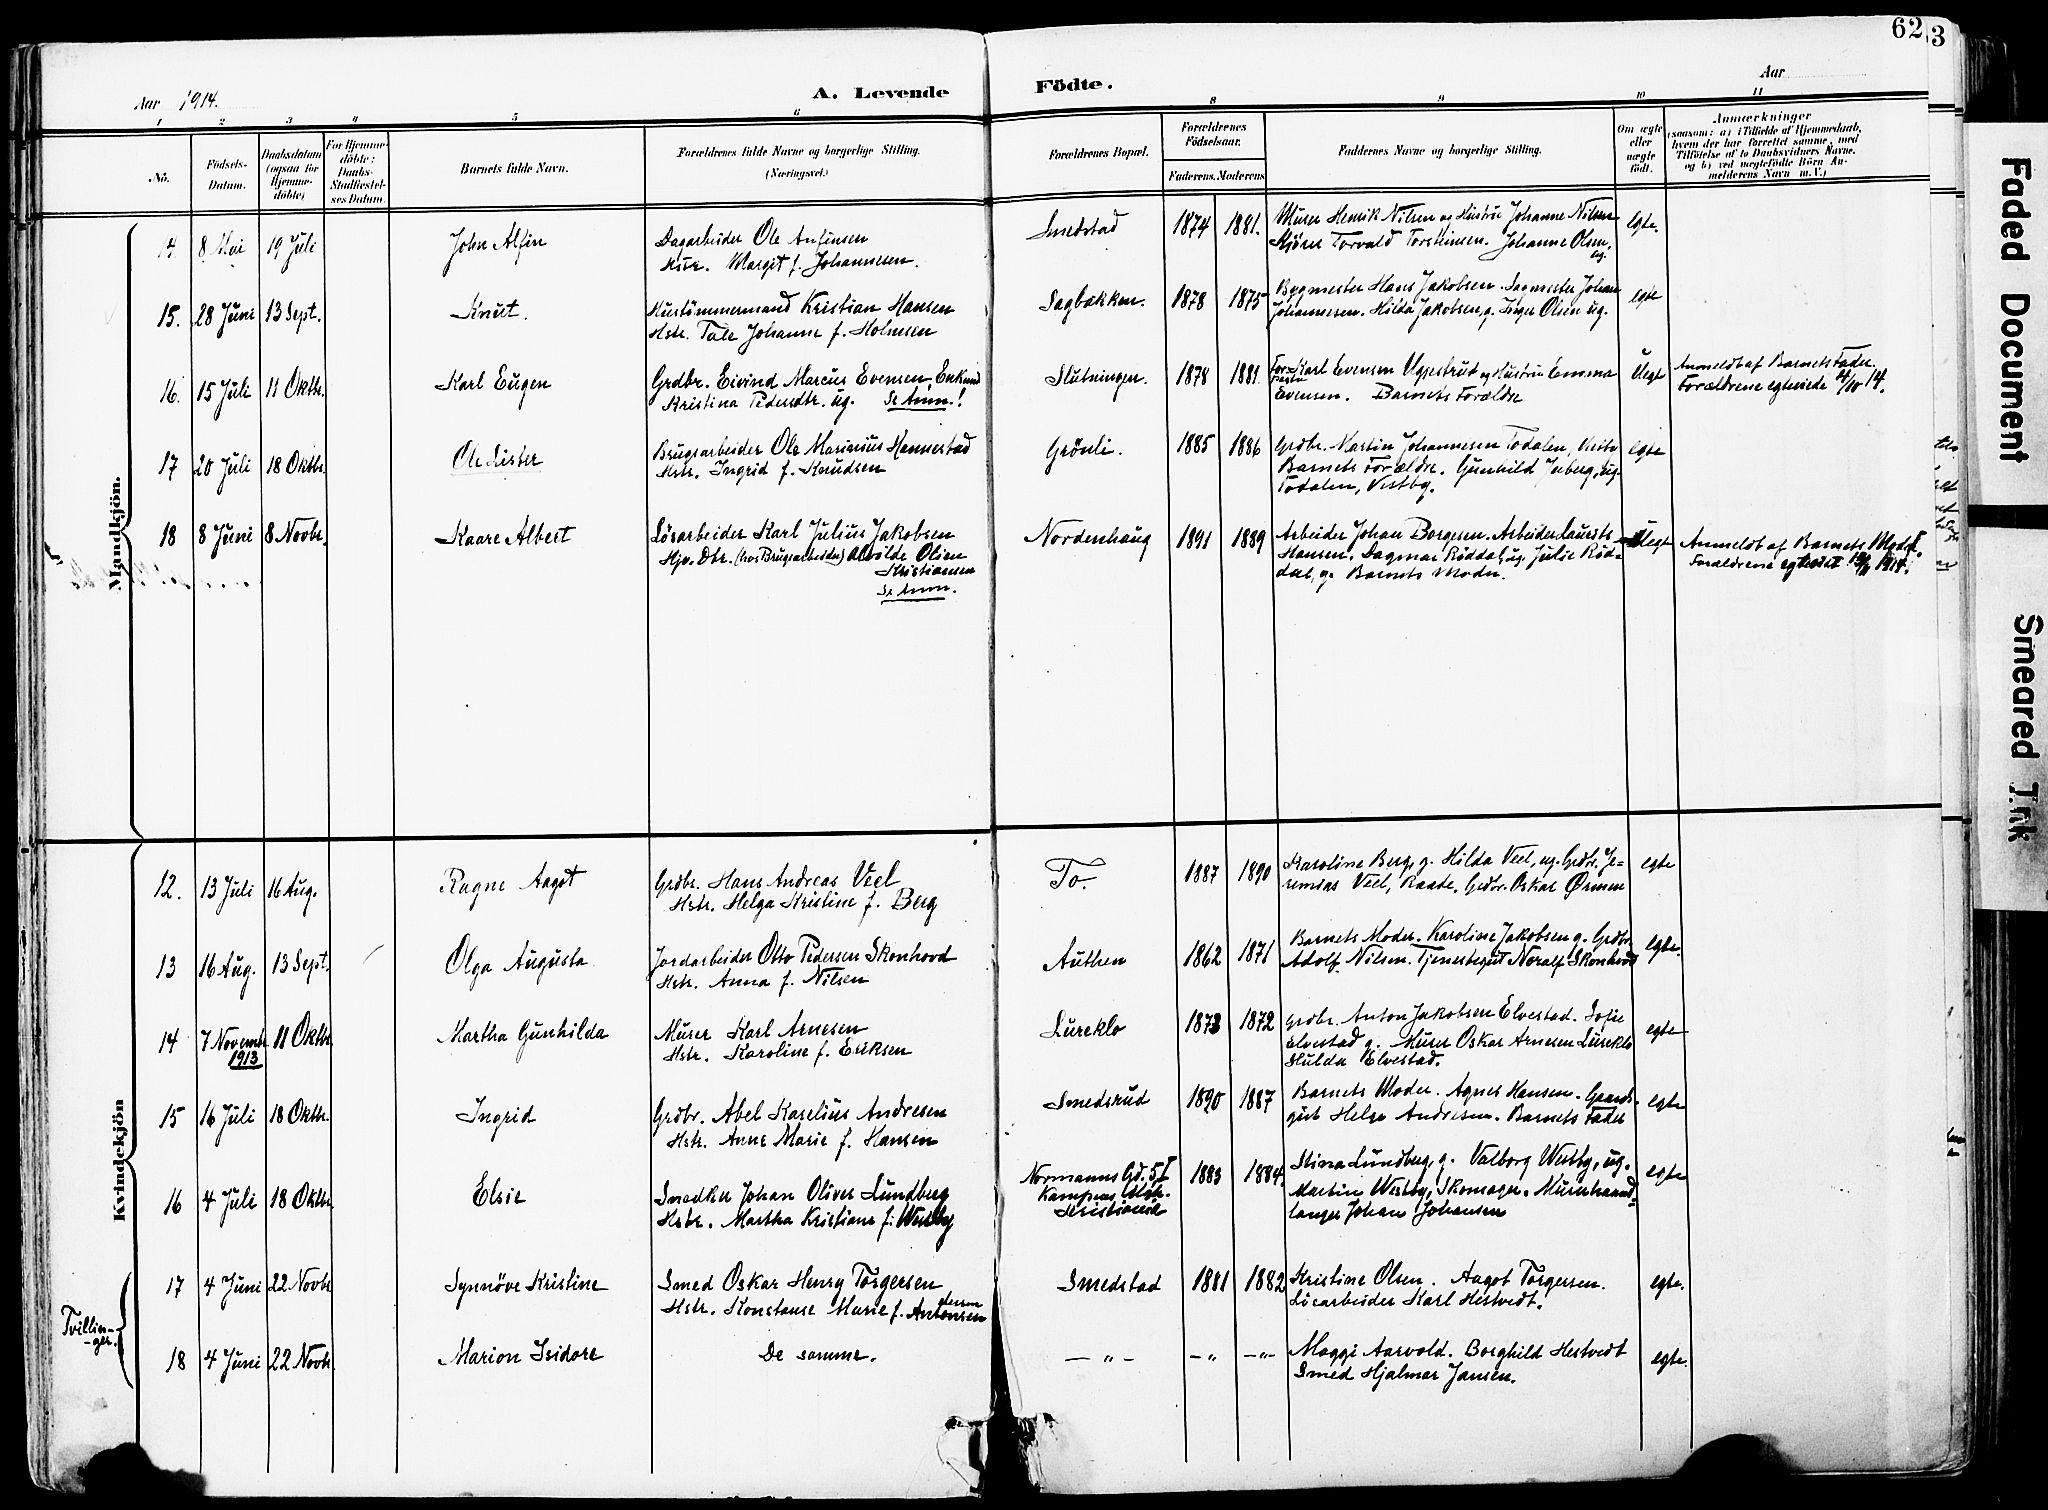 62
3
Aar 1914.
A. Levende
Födte.
Aar
1 2 3 4 5 6 8 9 10 11
No.
Födsels-
Datum.
Daabsdatum
(ogsaa for
Hjemme-
döbte)
For Hjemme-
döbte:
Daabs-
Stadfæstel-
ses Datum.
Barnets fulde Navn.
Forældrenes fulde Navne og borgerlige Stilling.
(Næringsvei.)
Forældrenes Bopæl.
Forældrenes
Födselsaar.
Faderens. Moderens
Faddernes Navne og borgerlige Stilling.
Om ægte
eller
uægte
födt.
Anmærkninger
(saasom: a) i Tilfælde af Hjemmedaab,
hvem der har forrettet samme, med
Tilföielse af to Daabsvidners Navne.
og b) ved uægtefödte Börn An-
melderens Navn m. V.)
Mandkjön.
14 8 Mai 19 Juli John Alfin
Dagarbeider Ole Anfinsen
Hstr. Margit f. Johannesen.
Smedstad 1874 1881.
Murer Henrik Nilsen og Hustru Johanne Nilsen
Kjörer Torvald Torsteinsen. Johanne Olsen,
ug.
egte.
15. 28 Juni 13 Sept. Knut.
Hustömmermand Kristian Hansen
Hstr. Tale Johanne f. Holmsen
Sagbakken. 1878 1875
Bygmester Hans Jakobsen. Sagmester Johan
Johannesen. Hilda Jakobsen, g. Inger Olsen ug.
egte
16. 15 Juli 11 Oktbr. Karl Eugen
Grdbr. Eivind Marcus Evensen, Enkmd
Kristina Pedersdtr. ug. Se Anm.!
Slutningen. 1878 1881.
Karl Evensen Ugjestrud og Hustru Emma
Evensen. Barnets Forældre
Uegte
Anmeldt af Barnets Fader.
Forældrene egteviede 11/10 14.
17 20 Juli 18 Oktbr. Ole Lister
Brugsarbeider Ole Marinius Hannestad
Hstr. Ingrid f. Knudsen
Grönli. 1885 1886
Grdbr. Martin Johannesen Todalen, Vestby
Barnets Forældre. Gunhild Isberg, ug.
Todalen, Vestby.
egte
18 8 Juni 8 Novbr. Kaare Albert
Lösarbeider Karl Julius Jakobsen
Hjv. Dtr. (hos Brugsarbeider) Alvilde Olsen
Kristiansen
Se Anm.
Nordenhaug 1891 1889
Arbeider Johan Borgersen. Arbeider Laurits
Hansen. Dagmar Röddal, ug. Julie Röd-
dal, g. Barnets Moder.
Uegte
Anmeldt af Barnets Moder.
Forældrene egteviet 1914.
Kvindekjön
12. 13 Juli 16 Aug. Ragne Aagot
Grdbr. Hans Andreas Veel
Hstr. Helga Kristine f. Berg
To. 1887 1890
Karoline Berg, g. Hilda Veel, ug. Grdbr. Je-
remias Veel, Raade. Grdbr. Oskar Ørmen
egte
13 16 Aug. 13 Sept. Olga Augusta
Jordarbeider Otto Pedersen Skonhovd
Hstr. Anna f. Nilsen
Authen 1862 1871
Barnets Moder. Karoline Jakobsen g. Grdbr.
Adolf Nilsen. Tjenestegut Noralf Skonhovd
egte.
14 7 Novembr. 11 Oktbr. Martha Gunhilda
1913
Murer Karl Arnesen
Hstr. Karoline f. Eriksen
Lureklo 1873 1872
Grdbr. Anton Jakobsen Elvestad. Sofie
Elvestad g. Murer Oskar Arnesen Lureklo
Hulda Elvestad.
egte
15 16 Juli 18 Oktbr. Ingrid
Grdbr. Abel Karelius Andresen
Hstr. Anne Marie f. Hansen
Smedsrud 1890 1887
Barnets Moder. Agnes Hansen. Gaards-
gut Helge Andresen. Barnets Fader
egte
16 4 Juli 18 Oktbr. Elsie
Snedker Johan Oliver Lundberg
Hstr. Martha Kristiane f. Westby
Normanns Gd. 5 I
Kampens
Kristiania
1883 1884.
Stina Lundberg, g. Valborg Westby, ug.
Martin Westby, Skomager. Murerhaand-
langer Johan Johansen
egte
Tvillin-
ger.
17 4 Juni 22 Novbr. Synnöve Kristine
Smed Oskar Henry Torgersen
Hstr. Konstanse Marie f. Antonsen
Smedstad 1881 1882
Kristine Olsen. Aagot Torgersen.
Lösarbeider Karl Hestvedt.
egte.
18 4 Juni 22 Novbr. Marion Isidore
De samme.
— „ — — „ — „ —
Maggi Aarvold. Borghild Hestvedt
Smed Hjalmar Jansen.
egte.
Faded Document
Smeared Ink